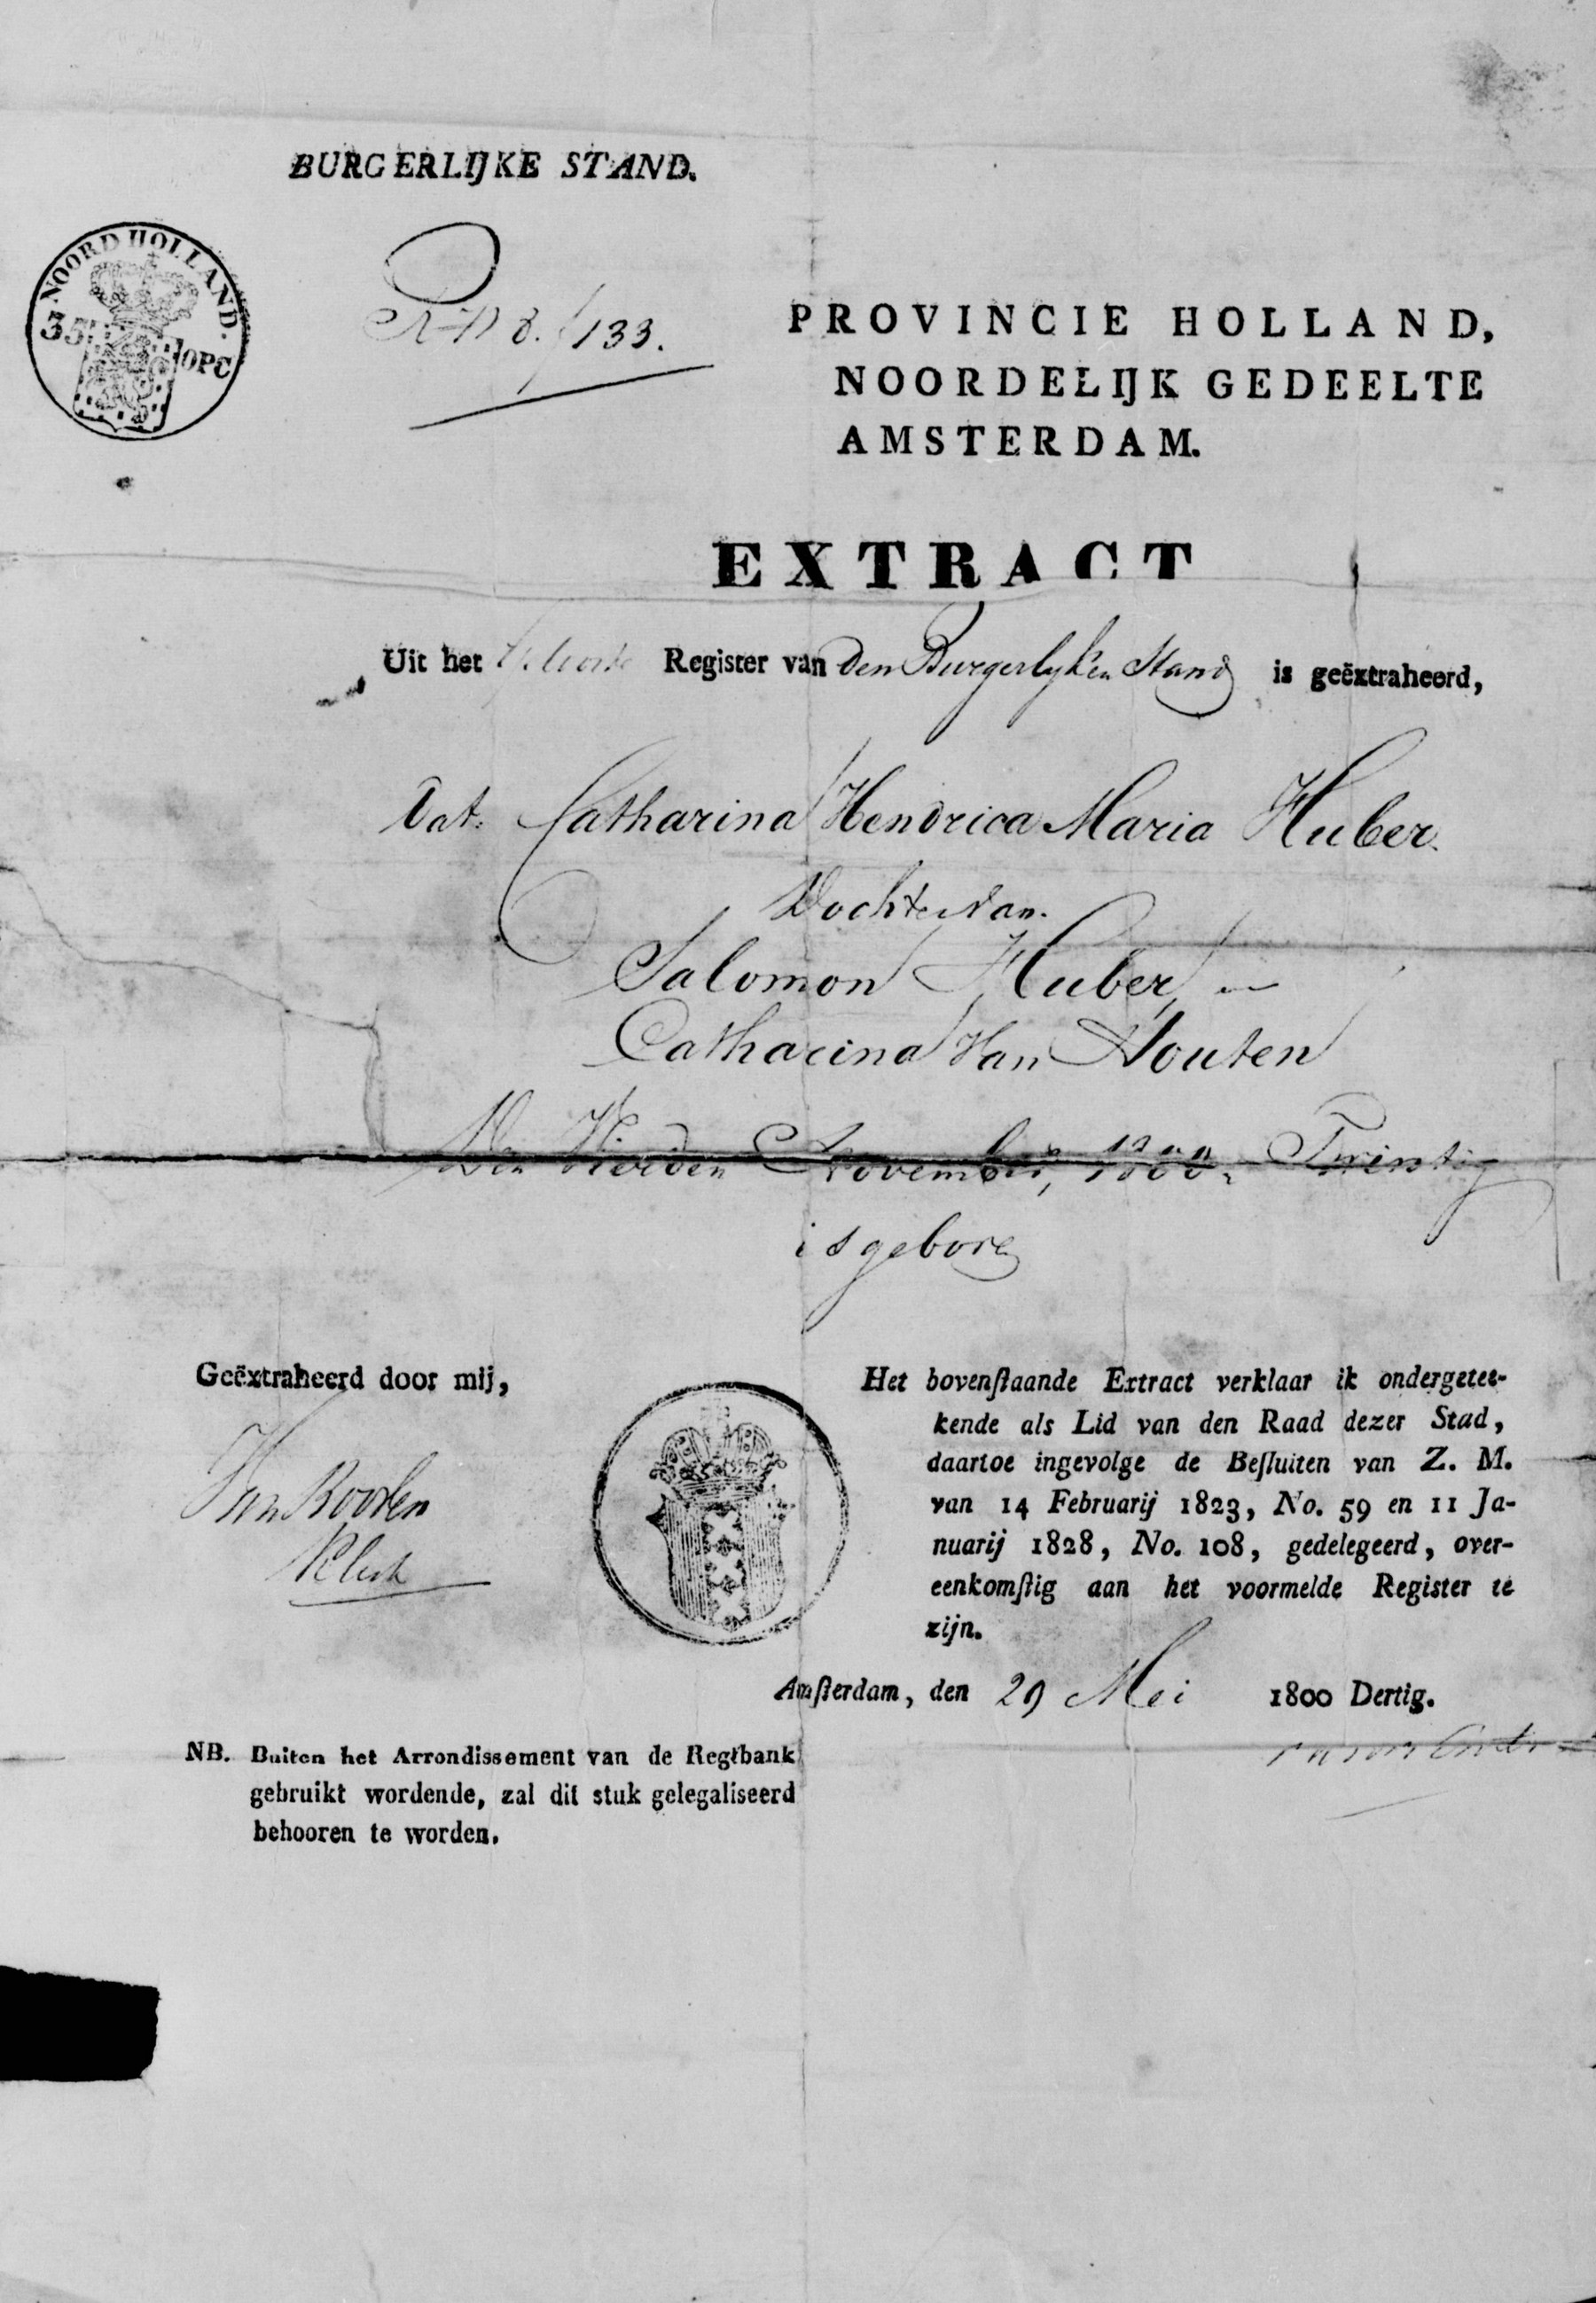 BURGERLIJKE STAND.
NOORD HOLLAND.
35 10PC
8. f 133.
PROVINCIE HOLLAND,
NOORDELIJK GEDEELTE
AMSTERDAM.
EXTRACT
Uit het Geboorte Register van Den Burgerlyken Stand is geëxtraheerd,
Dat Catharina Hendrica Maria Huber.
Dochter van.
Salomon Huber, en
Catharina Van Houten
Den Vierden November, 1800. Twintig
is geboren
Geëxtraheerd door mij,
Klerk
Het bovenſtaande Extract verklaar ik ondergetee-
kende als Lid van den Raad dezer Stad,
daartoe ingevolge de Beſluiten van Z. M.
van 14 Februarij 1823, No. 59 en 11 Ja-
nuarij 1828, No. 108, gedelegeerd, over-
eenkomſtig aan het voormelde Register te
zijn.
Amſterdam, den 29 Mei 1800 Dertig.
NB. Buiten het Arrondissement van de Regtbank
gebruikt wordende, zal dit stuk gelegaliseerd
behooren te worden.